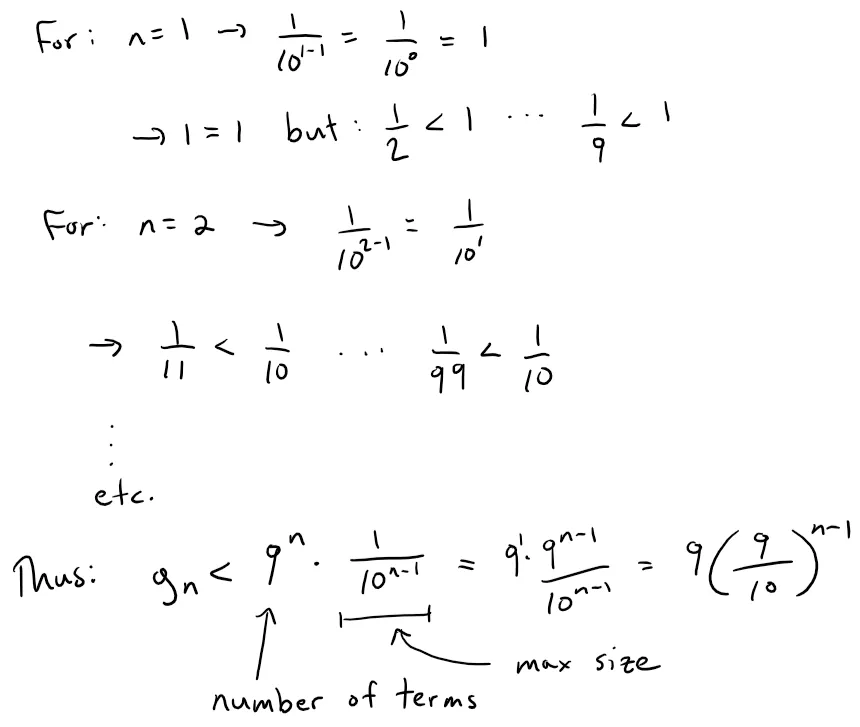 For: n = 1 → 1/10^(1-1) = 1/10^0 = 1
→ 1 = 1 but: 1/2 < 1 ... 1/9 < 1
For: n = 2 → 1/10^(2-1) = 1/10^1
→ 1/11 < 1/10 ... 1/99 < 1/10
⋮
etc.
Thus: g_n < 9^n · 1/10^(n-1) = 9^1 · 9^(n-1)/10^(n-1) = 9(9/10)^(n-1)
max size
number of terms